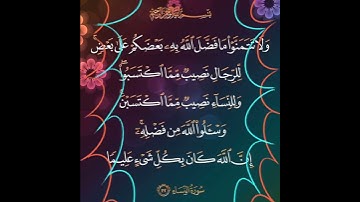 بِسْمِ اللَّهِ الرَّحْمَٰنِ الرَّحِيمِ
وَلَا تَتَمَنَّوْا۟ مَا فَضَّلَ ٱللَّهُ بِهِۦ بَعْضَكُمْ عَلَىٰ بَعْضٍۢ ۚ
لِّلرِّجَالِ نَصِيبٌۭ مِّمَّا ٱكْتَسَبُوا۟ ۖ
وَلِلنِّسَآءِ نَصِيبٌۭ مِّمَّا ٱكْتَسَبْنَ ۚ
وَسْـَٔلُوا۟ ٱللَّهَ مِن فَضْلِهِۦٓ ۗ
إِنَّ ٱللَّهَ كَانَ بِكُلِّ شَىْءٍ عَلِيمًۭا
سُورَةُ النِّسَاء ٣٢